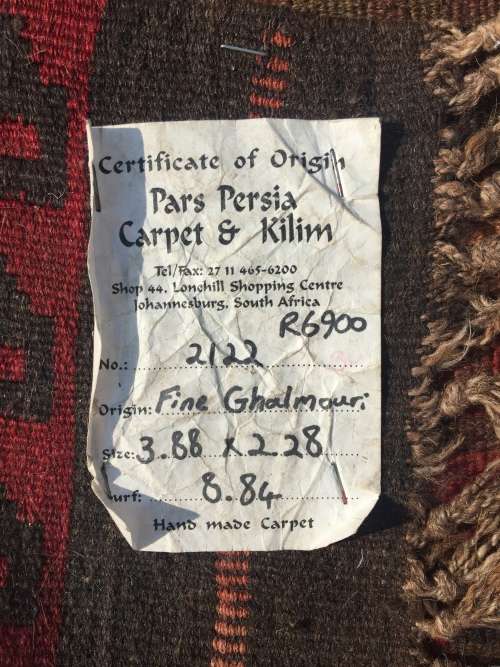 Certificate of Origin
Pars Persia
Carpet & Kilim
Tel/Fax: 27 11 465-6200
Shop 44, Lonehill Shopping Centre
Johannesburg, South Africa
R6900
No.: 2122
Origin: Fine Ghalmouri
Size: 3.88 x 2.28
urf: 8.84
Hand made Carpet